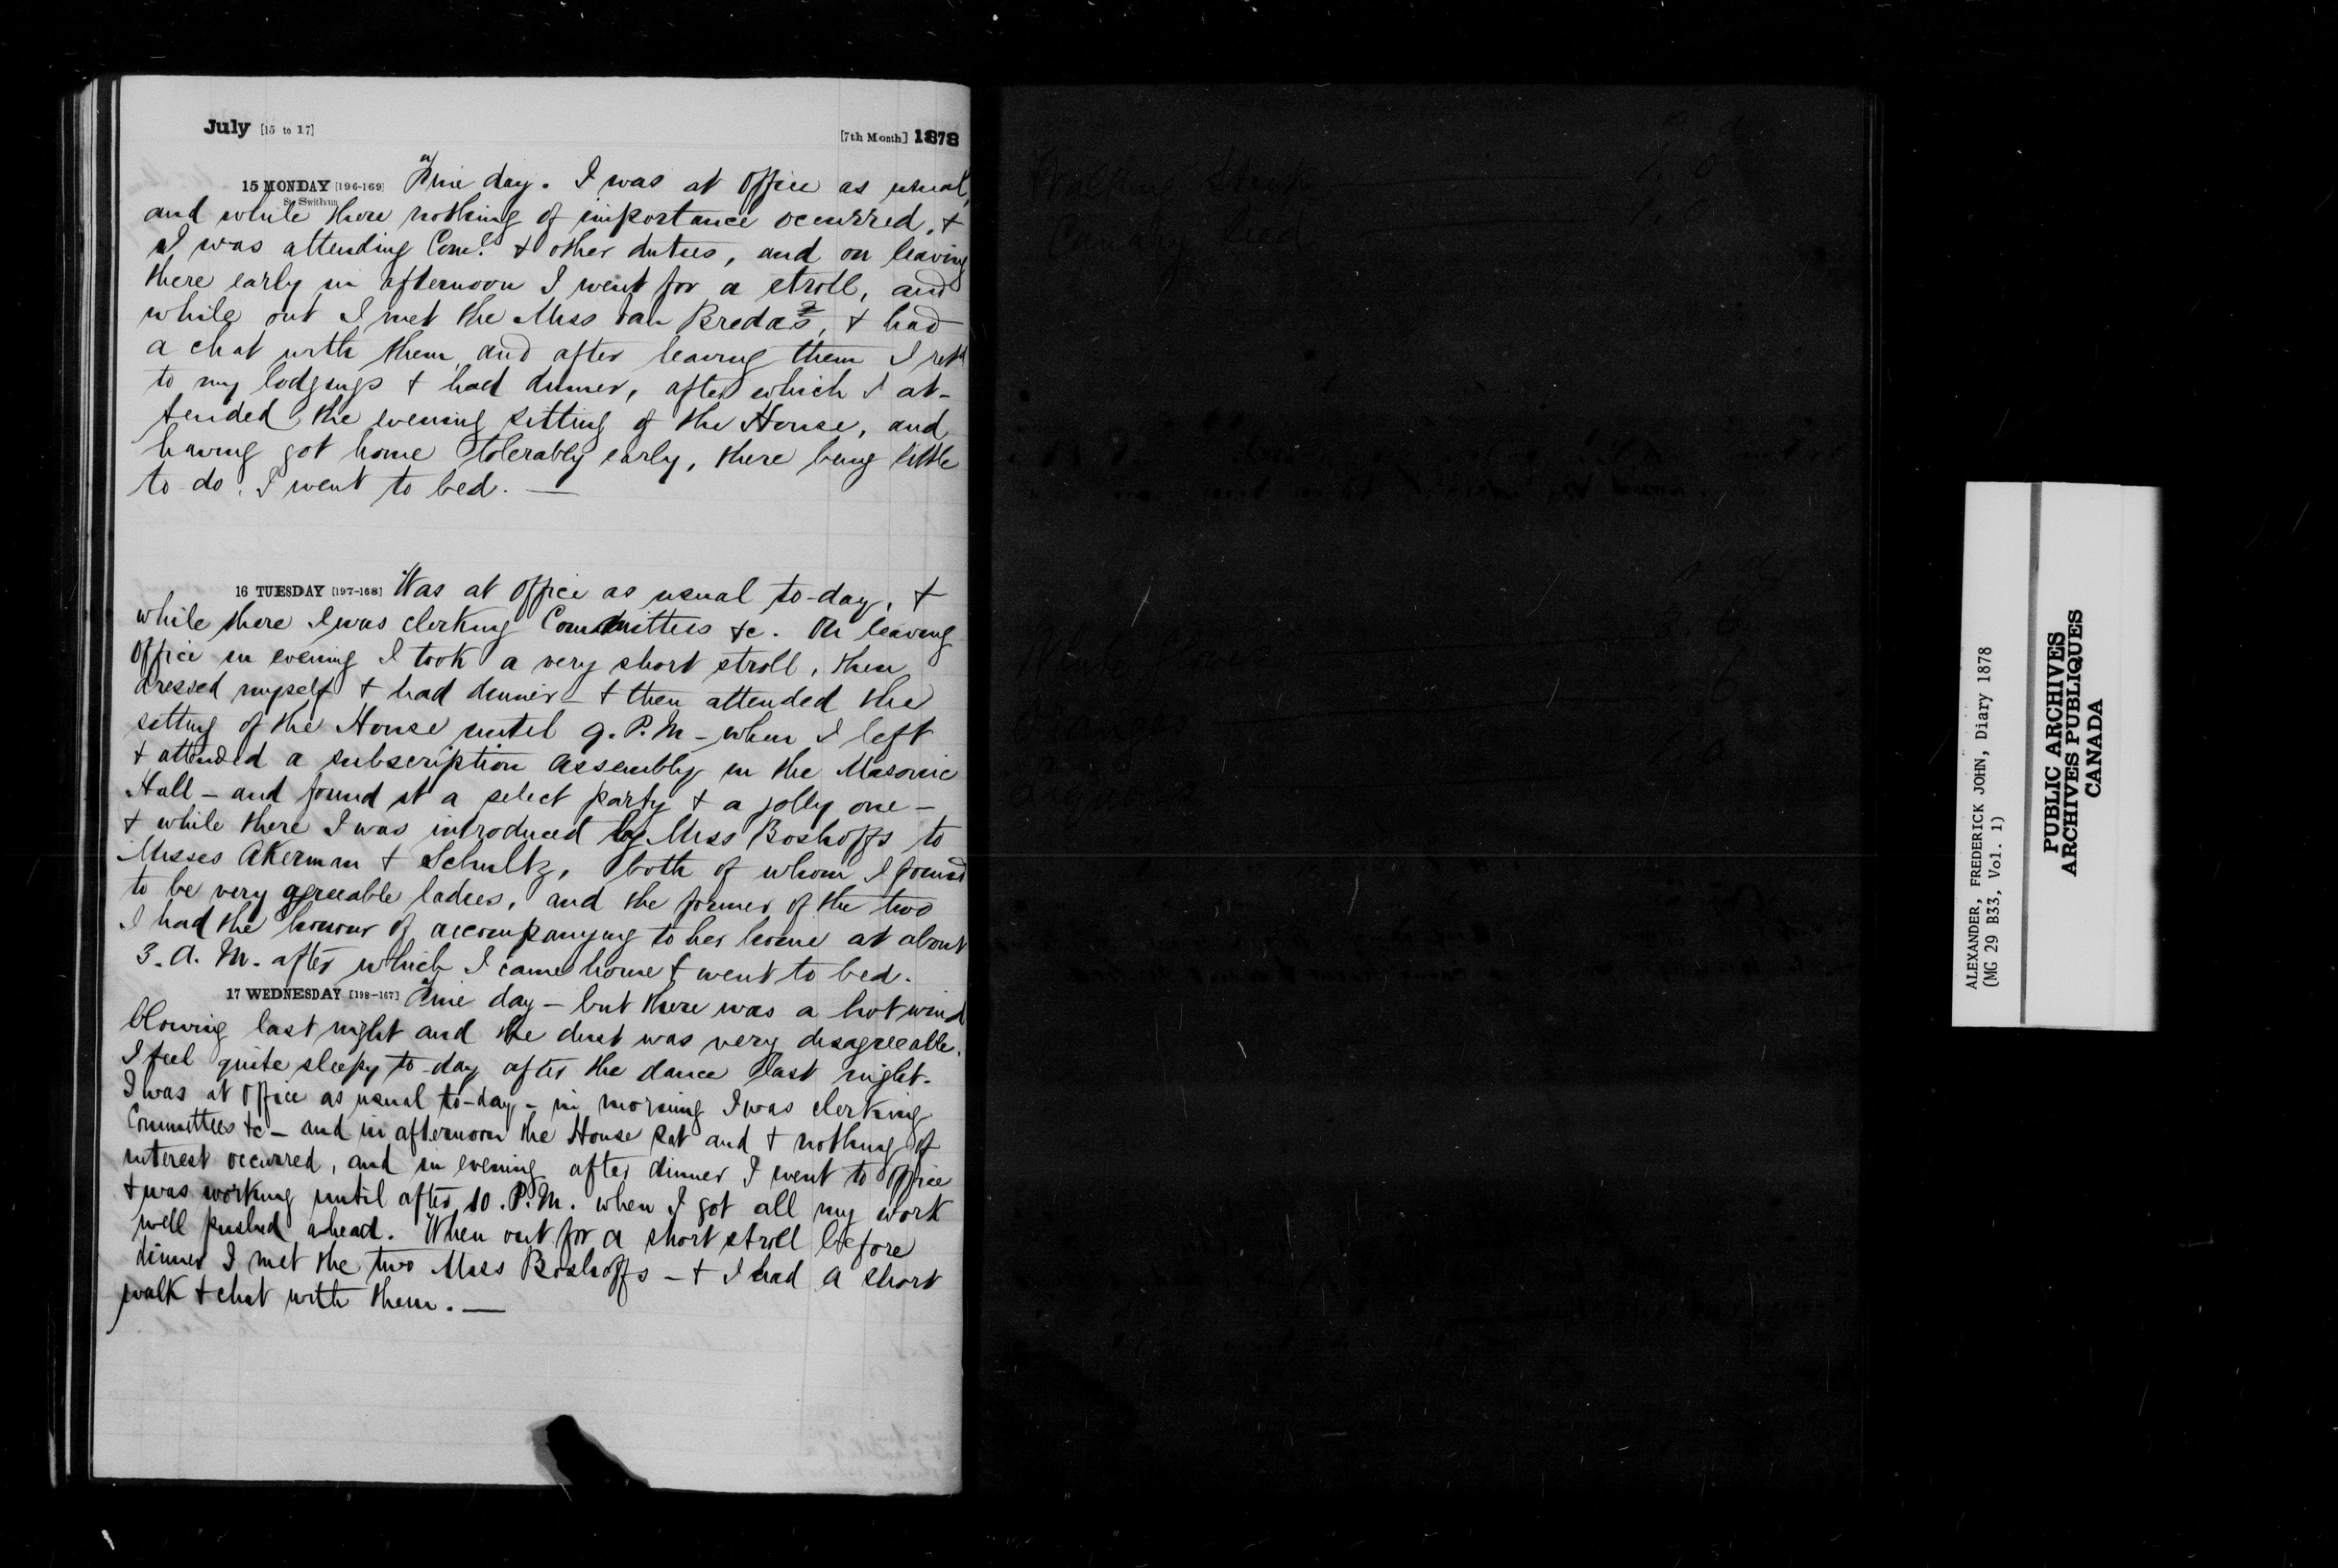 July [15 to 17] [7th Month] 1878
15 MONDAY [196-169] Fine day. I was at Office as usual,
St. Swithun
and while there nothing of importance occurred, +
I was attending Come. + other duties, and on leaving
there early in afternoon I went for a stroll, and
while out I met the Miss van Breda's, + had
a chat with them, and after leaving them I retd
to my lodgings + had dinner, after which I at-
tended the evening sitting of the House, and
having got home tolerably early, there being little
to do, I went to bed. —
16 TUESDAY [197-168] Was at Office as usual to-day, +
while there I was clerking Committees &c. On leaving
Office in evening I took a very short stroll, then
dressed myself + had dinner - + then attended the
sitting of the House until 9. P.M - when I left
+ attended a subscription assembly in the Masonic
Hall - and found it a select party + a jolly one -
+ while there I was introduced by Miss Boshoffs to
Misses Akerman + Schultz, both of whom I found
to be very agreeable ladies, and the former of the two
I had the honour of accompanying to her home at about
3. A. M. after which I came home + went to bed.
17 WEDNESDAY [198-167] Fine day - but there was a hot wind
blowing last night and the dust was very disagreeable.
I feel quite sleepy to-day after the dance last night.
I was at Office as usual to-day - in morning I was clerking
Committees &c - and in afternoon the House sat and + nothing of
interest occurred, and in evening after dinner I went to Office
+ was working until after 10. P.M. when I got all my work
well pushed ahead. When out for a short stroll before
dinner I met the two Miss Boshoffs - + I had a short
walk + chat with them. —
Walking Stick 1. 0
Canary Seed
ALEXANDER, FREDERICK JOHN, Diary 1878
(MG 29 B33, Vol. 1)
PUBLIC ARCHIVES
ARCHIVES PUBLIQUES
CANADA